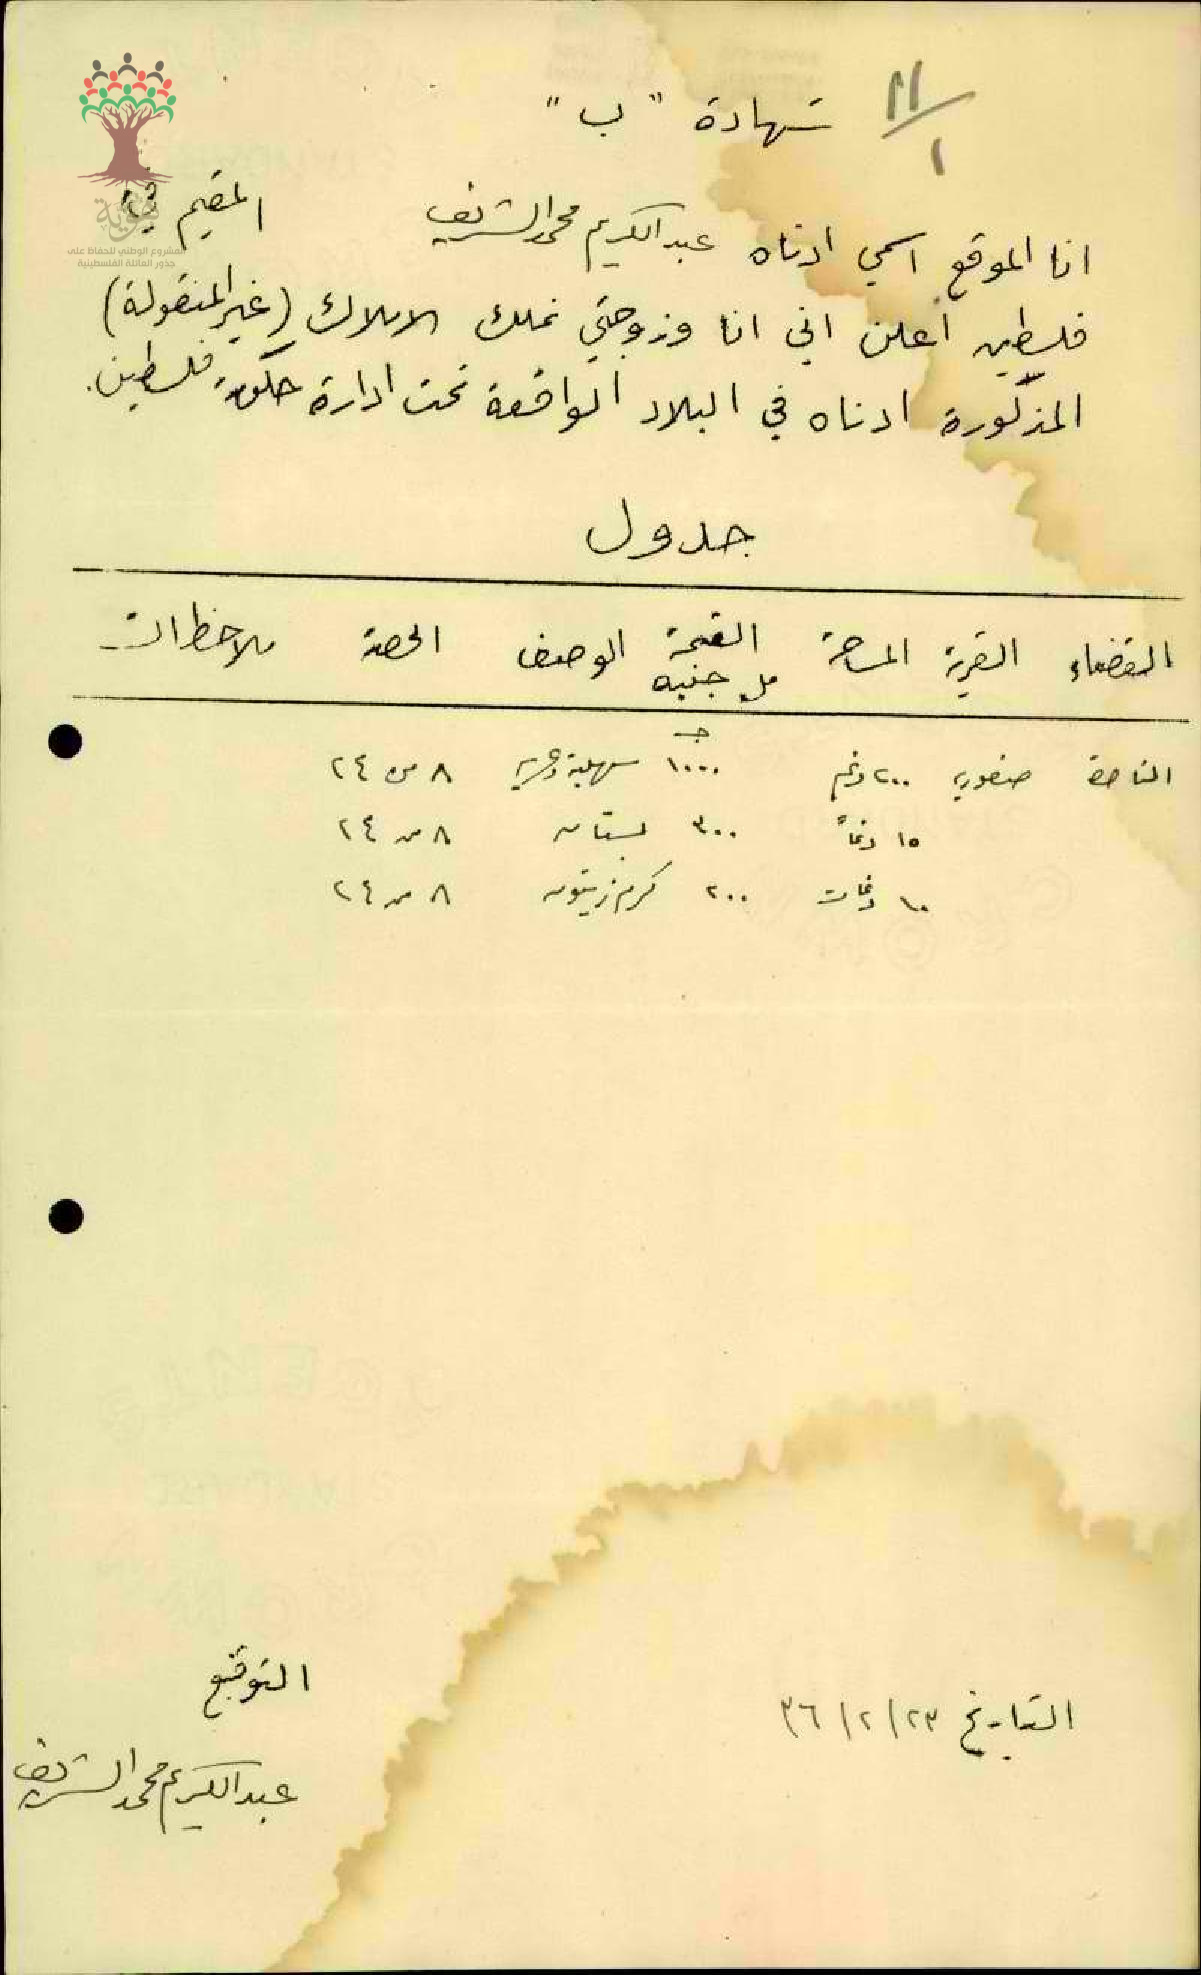 ١١/١
شهادة "ب"
انا الموقع اسمي ادناه عبدالكريم محمد الشريف المقيم في
فلسطين أعلن اني انا وزوجتي نملك الاملاك (غير المنقولة)
المذكورة ادناه في البلاد الواقعة تحت ادارة حكومة فلسطين.
جدول
القضاء القرية المساحة القيمة الوصف الحصة ملاحظات
مل جنيه
جـ
الناصرة صفوريه ٢٠٠ دنم ١٠٠٠ سهلية ٨ من ٢٤
١٥ دنماً ٣٠٠ بستان ٨ من ٢٤
١٠ دنمات ٢٠٠ كرم زيتون ٨ من ٢٤
التوقيع
التاريخ ٢٣/٢/٣٦
عبدالكريم محمد الشريف
هوية
المشروع الوطني للحفاظ على
جذور العائلة الفلسطينية